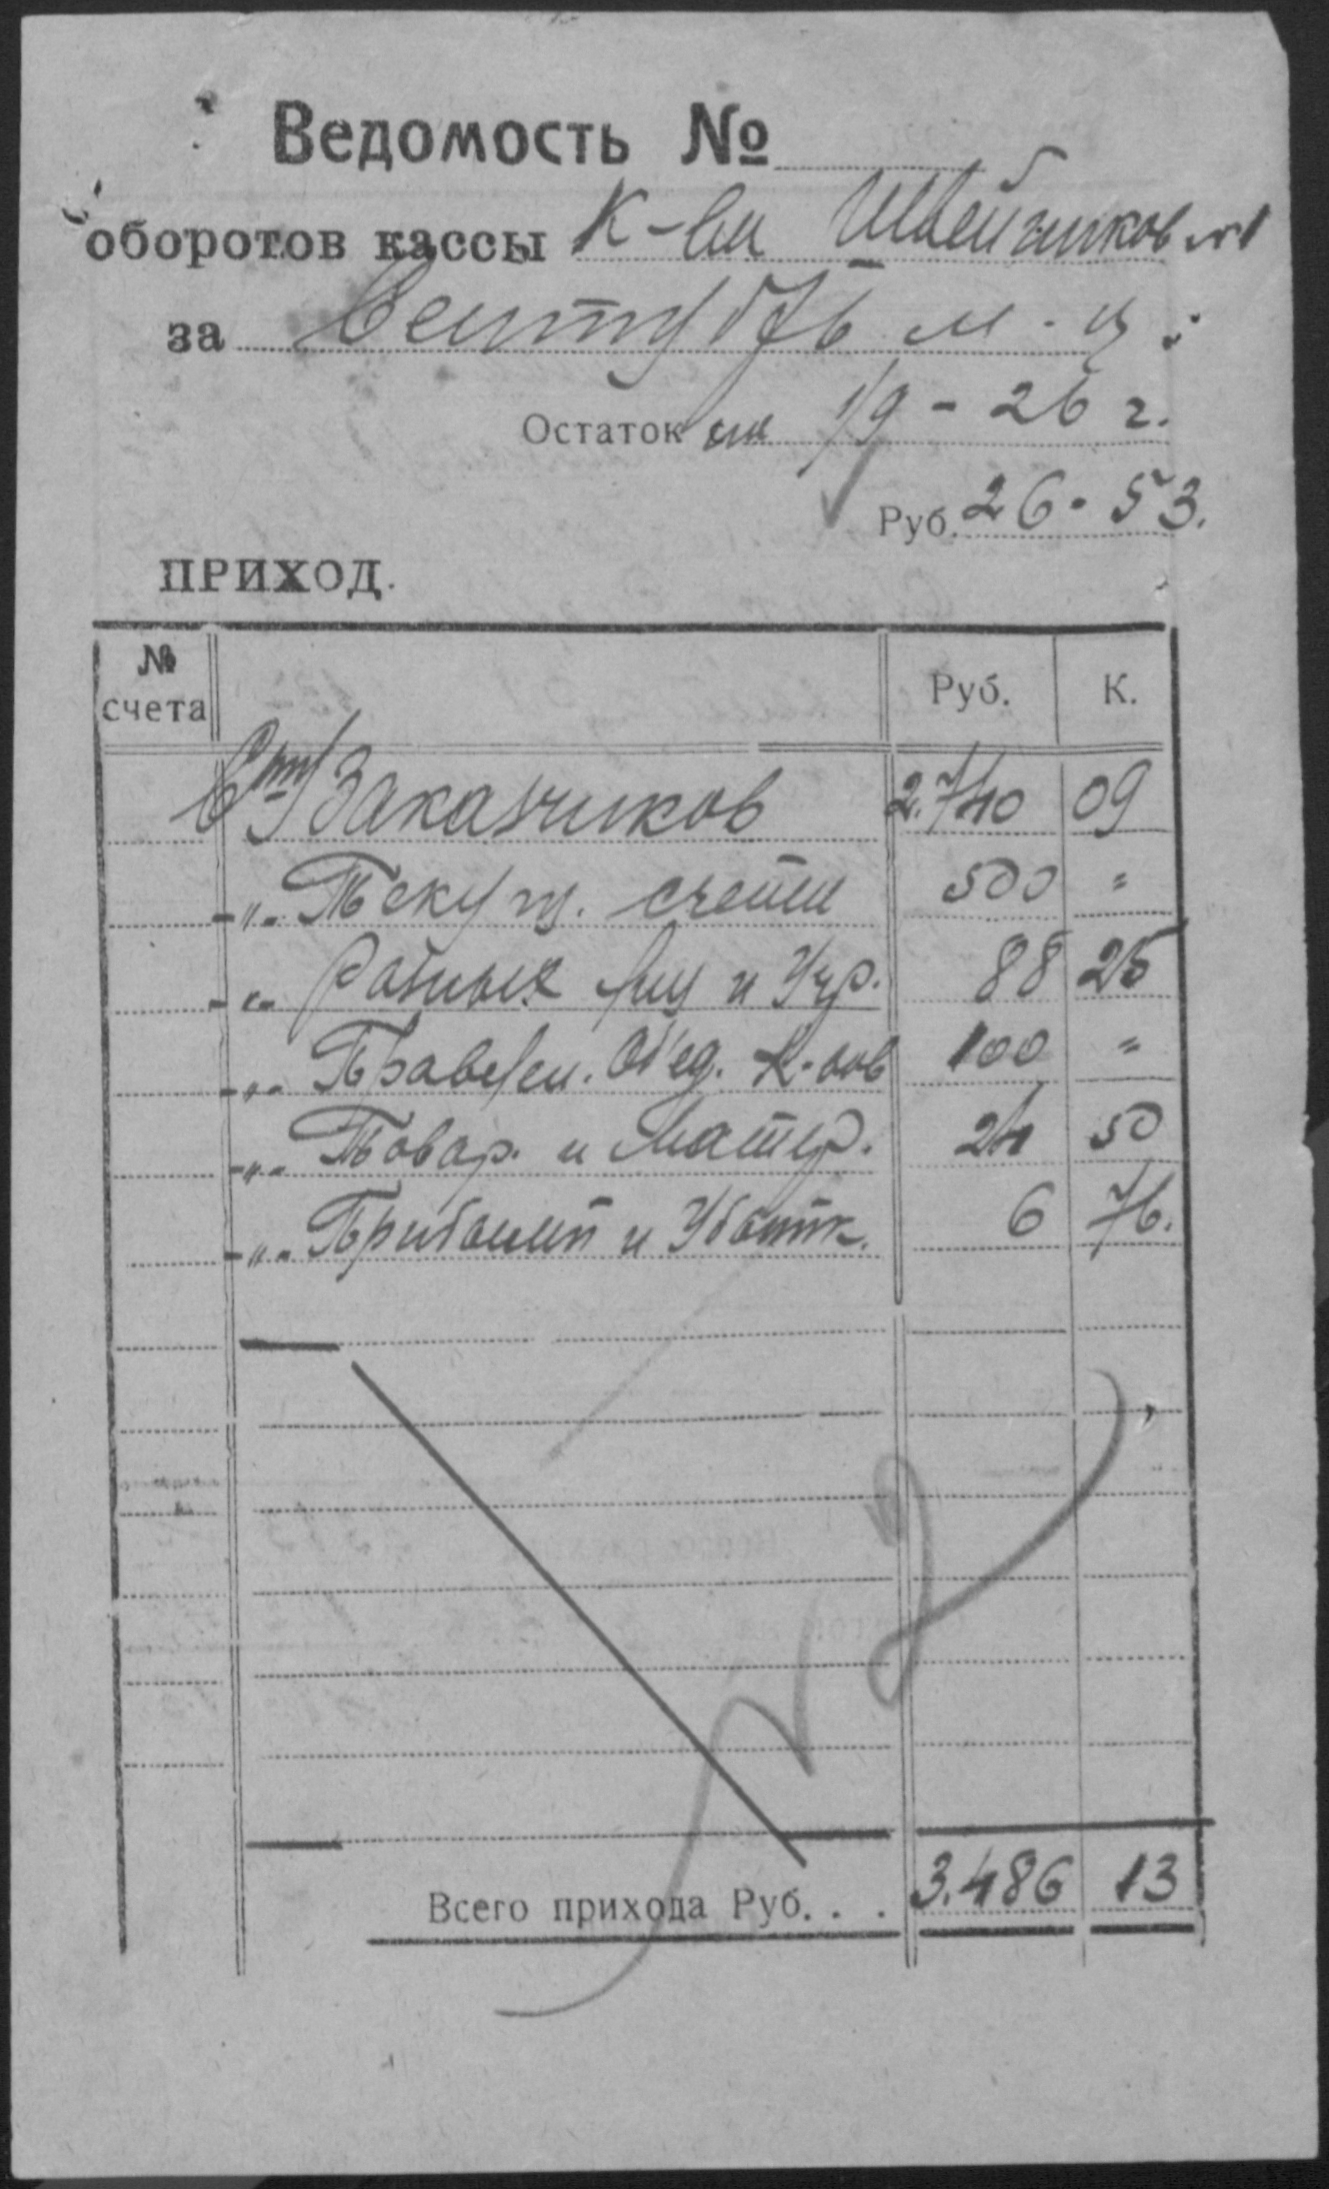 Ведомость №
оборотов кассы К-ва Швейников №1
за Сентябрь м-ц
Остаток на 1/9 - 26 г.
Руб. 26-53.
ПРИХОД.
№ счета Руб. К.
Заказчиков 2.740 09
-"- Текущ. счета 500 "
-"- Разных лиц и Учр. 88 25
-"- Правлен. Об'ед. К-вов 100 "
-"- Товар. и Матер. 24 50
-"- Прибылей и Убытк. 6 76.
Всего прихода Руб. . . 3.486 13